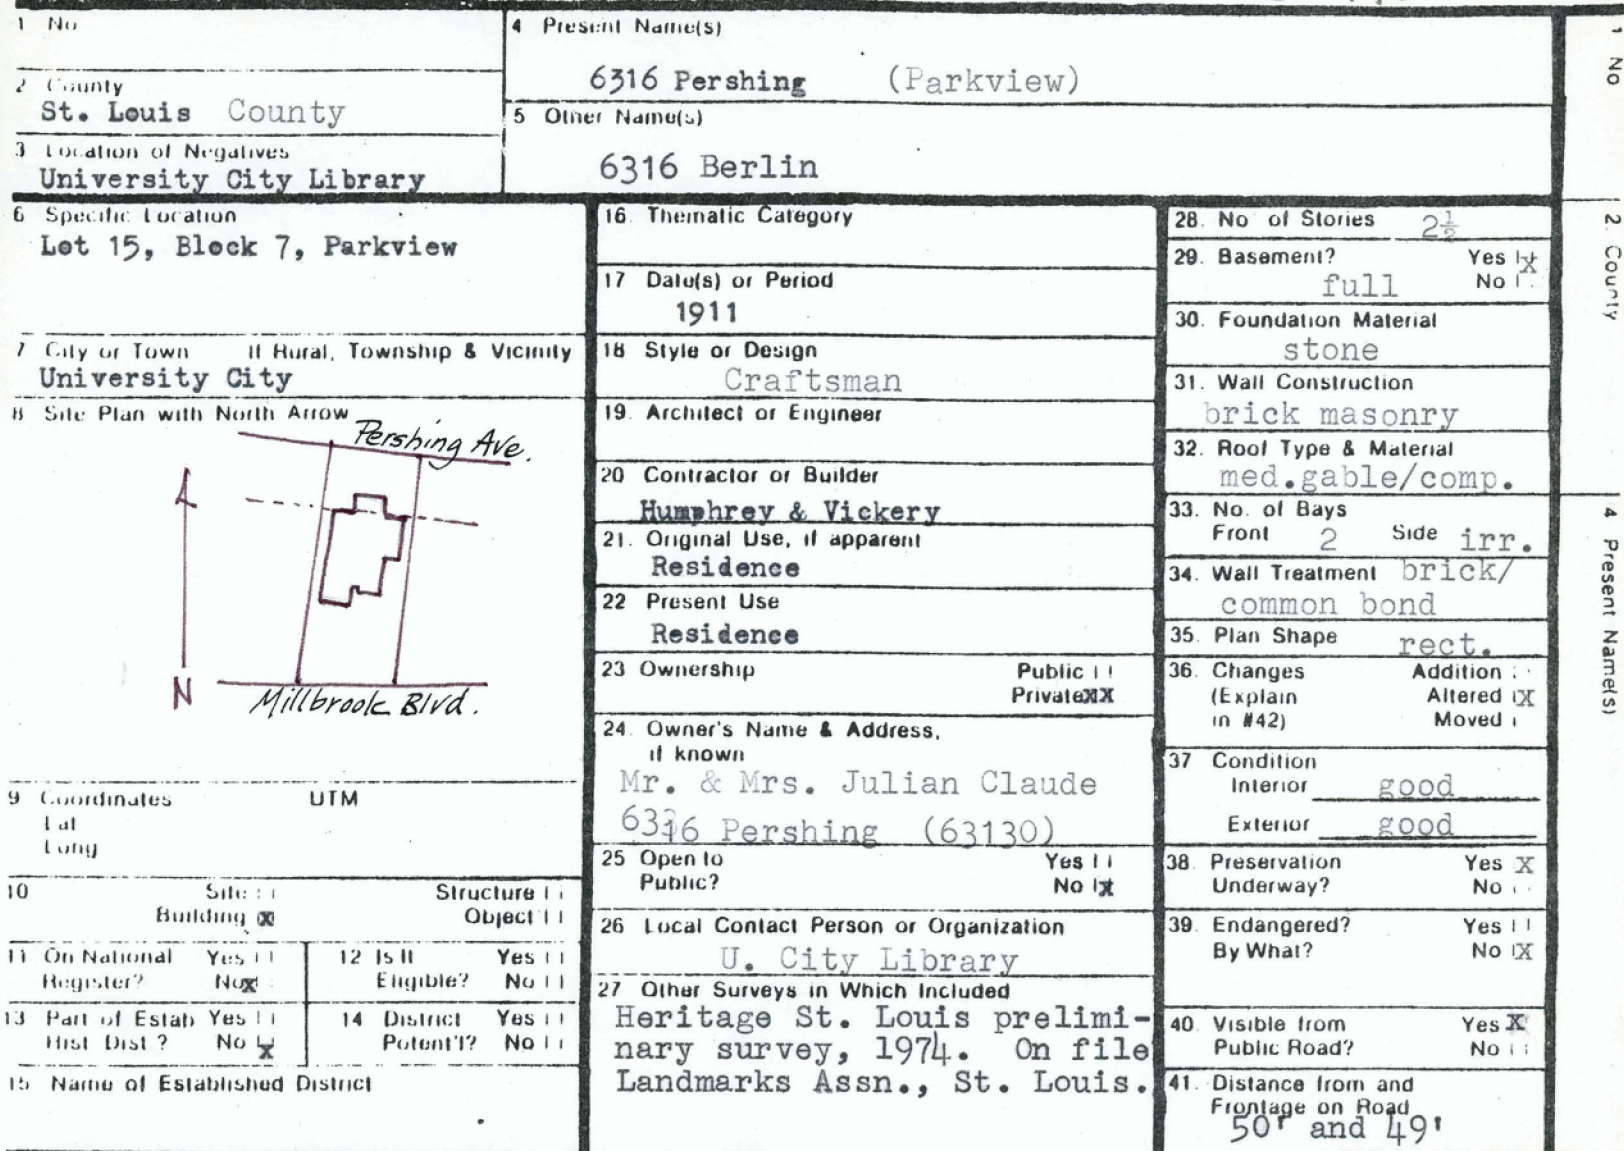 1 No
4 Present Name(s)
6316 Pershing (Parkview)
2 County
St. Louis County
5 Other Name(s)
6316 Berlin
3 Location of Negatives
University City Library
6 Specific Location
Lot 15, Block 7, Parkview
7 City or Town If Rural, Township & Vicinity
University City
8 Site Plan with North Arrow
Pershing Ave.
N
Millbrook Blvd.
9 Coordinates UTM
Lat
Long
10 Site Structure
Building X Object
11 On National Register? Yes No X
12 Is It Eligible? Yes No
13 Part of Estab Hist Dist? Yes No X
14 District Potent'l? Yes No
15 Name of Established District
16. Thematic Category
17 Date(s) or Period
1911
18 Style or Design
Craftsman
19. Architect or Engineer
20 Contractor or Builder
Humphrey & Vickery
21. Original Use, if apparent
Residence
22 Present Use
Residence
23 Ownership Public
Private XX
24. Owner's Name & Address,
if known
Mr. & Mrs. Julian Claude
6316 Pershing (63130)
25 Open to Yes
Public? No X
26 Local Contact Person or Organization
U. City Library
27 Other Surveys in Which Included
Heritage St. Louis prelimi-
nary survey, 1974. On file
Landmarks Assn., St. Louis.
28. No of Stories 2½
29. Basement? Yes X
full No
30. Foundation Material
stone
31. Wall Construction
brick masonry
32. Roof Type & Material
med.gable/comp.
33. No. of Bays
Front 2 Side irr.
34. Wall Treatment brick/
common bond
35. Plan Shape rect.
36. Changes Addition
(Explain Altered X
in #42) Moved
37 Condition
Interior good
Exterior good
38. Preservation Yes X
Underway? No
39. Endangered? Yes
By What? No X
40. Visible from Yes X
Public Road? No
41. Distance from and
Frontage on Road
50' and 49'
1 No
2. County
4 Present Name(s)